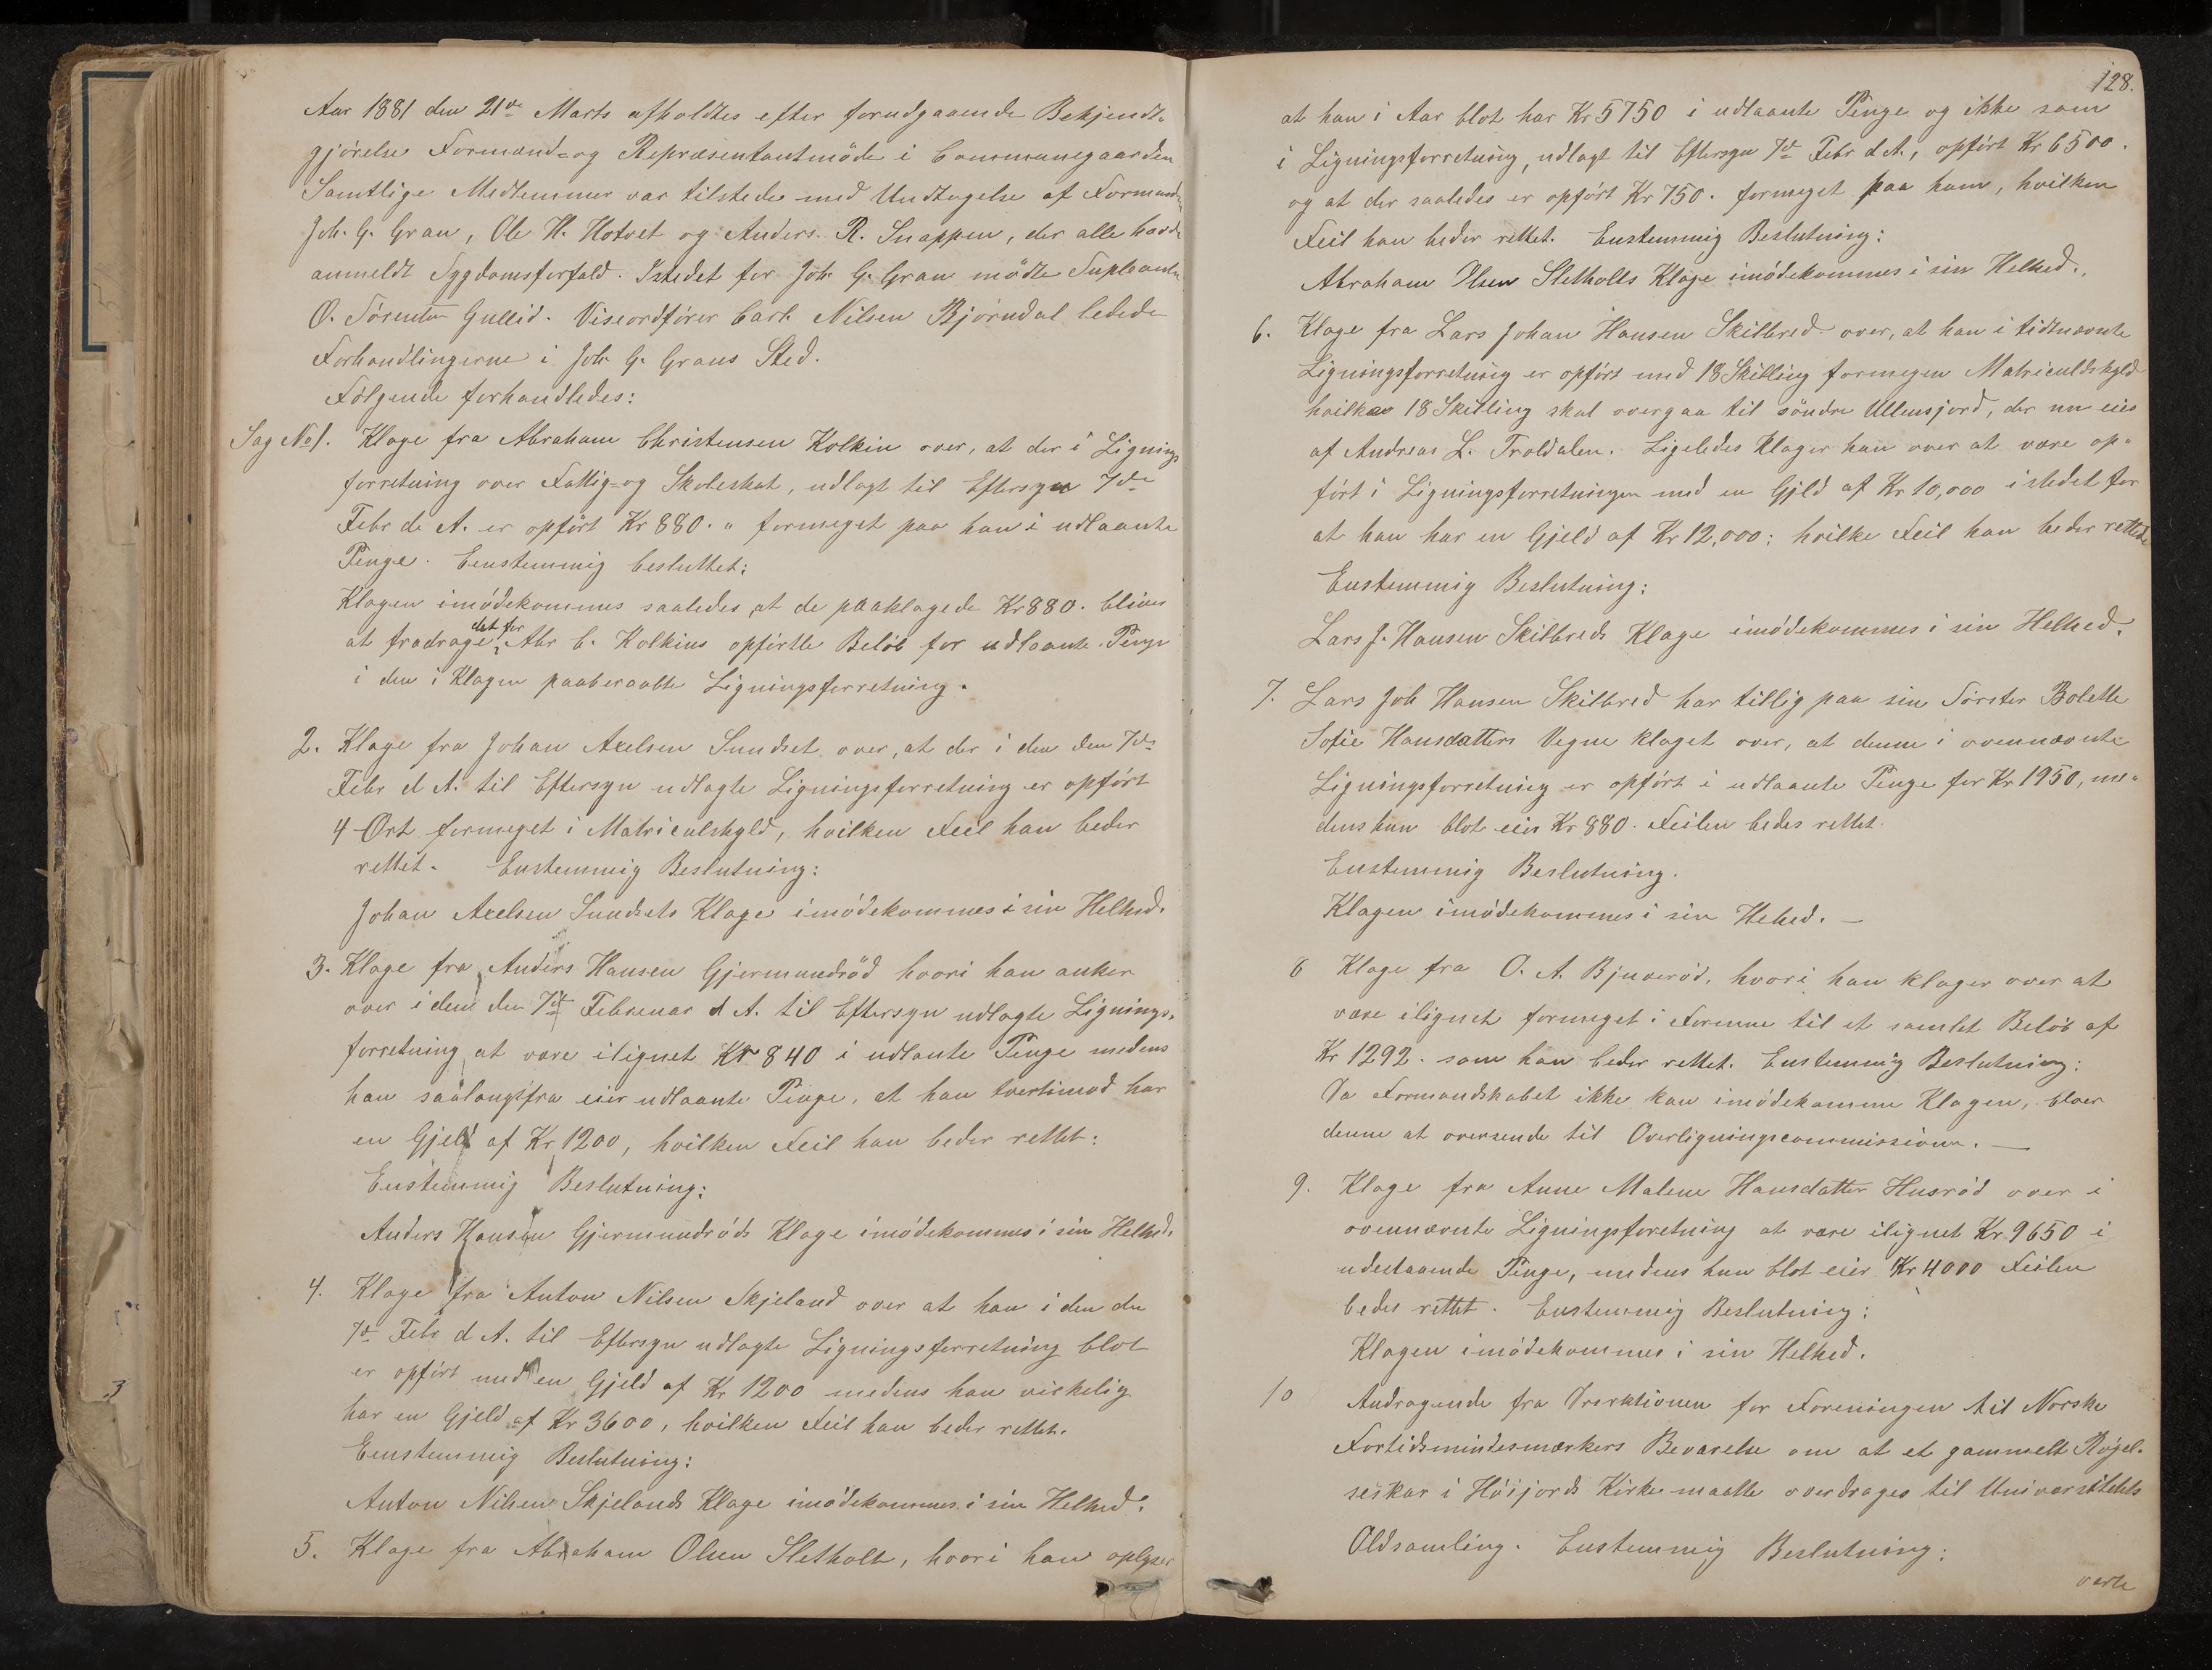 Aar 1881 den 21de Marts afholdtes efter forudgaaende Bekjendt-
gjörelse Formand- og Repræsentantmöde i Communegaarden
Samtlige Medlemmer var tilstede med Undtagelse af Formanden
Joh. G. Gran, Ole H. Hotvet og Anders R. Snappen, der alle havde
anmeldt Sygdomsforfald. Istedet for Joh. G. Gran mödte Supleanten
O. Sörensen Gullid. Viseordförer Carl Nilsen Bjørndal ledede
Forhandlingerne i Joh. G. Grans Sted.
Følgende forhandledes:
Sag No 1. Klage fra Abraham Christensen Kolkin over, at der i Lignings
forretning over Fattig- og Skoleskat, udlagt til Eftersyn 7de
Febr d. A. er opfört Kr 880. " formeget paa han i udlaante
Penge. Eenstemmig besluttet:
Klagen imödekommes saaledes at de paaklagede Kr 880. bliver
at fradrage det for Abr C. Kolkins opförtte Belöb for udlaante Penge
i den i Klagen paaberaabte Ligningsforretning.
2. Klage fra Johan Axelsen Sundset over, at der i den den 7de
Febr d A. til Eftersyn udlagte Ligningsforretning er opfört
4 Ort formeget i Matriculskyld, hvilken Feil han beder
rettet. Enstemmig Beslutning:
Johan Axelsen Sundsets Klage imödekommes i sin Helhed.
3. Klage fra Anders Hansen Gjermundröd hvori han anker
over i den den 7de Februar d A. til Eftersyn udlagte Lignings-
forretning at være ilignet Kr 840 i udlante Penge medens
han saalangtfra eier udlaante Penge, at han tvertimod har
en Gjeld af Kr 1200, hvilken Feil han beder rettet:
Eenstemmig Beslutning:
Anders Hansen Gjermundröds Klage imödekommes i sin Helhed.
4. Klage fra Anton Nilsen Skjeland over at han i den den
7de Febr d A. til Eftersyn udlagte Ligningsforretning blot
er opfört med en Gjeld af Kr 1200 medens han virkelig
har en Gjeld af Kr 3600, hvilken Feil han beder rettet.
Eenstemmig Beslutning:
Anton Nilsen Skjelands Klage imödekommes i sin Helhed.
5. Klage fra Abraham Olsen Sletholt, hvori han oplyser
128.
at han i Aar blot har Kr 5750 i udlaante Penge og ikke som
i Ligningsforretning, udlagt til Eftersyn 7de Febr d. A., opfört Kr 6500.
og at der saaledes er opfört Kr 750. formeget paa ham, hvilken
Feil han beder rettet. Enstemmig Beslutning:
Abraham Olsen Sletholts Klage imödekommes i sin Helhed.
6. Klage fra Lars Johan Hansen Skilbred over, at han i tidtnævnte
Ligningsforretning er opfört med 18 Skilling formegen Matriculskyld
hvilke 18 Skilling skal overgaa til söndre Ullensjord, der nu eies
af Andreas L. Troldalen. Ligeledes Klager han over at være op-
fört i Ligningsforretningen med en Gjeld af Kr 10,000 istedet for
at han har en Gjeld af Kr 12,000: hvilke Feil han beder rettede
Enstemmig Beslutning:
Lars J. Hansen Skilbreds Klage imödekommes i sin Helhed.
7. Lars Joh Hansen Skilbred har tillig paa sin Sörster Bolette
Sofie Hansdatters Vegne klaget over, at denne i ovennævnte
Ligningsforretning er opfört i udlaante Penge for Kr 1950, me-
dens hun blot eier Kr 880. Feilen bedes rettet.
Enstemmig Beslutning.
Klagen imödekommes i sin Hehed. —
8 Klage fra O. A. Bjuveröd, hvori han klager over at
være ilignet formeget i Formue til et samlet Belöb af
Kr 1292. som han beder rettet. Enstemmig Beslutning:
Da Formandskabet ikke kan imödekomme Klagen, bliver
denne at oversende til Overligningscommissionen. —
9. Klage fra Anne Malene Hansdatter Husröd over i
ovennævnte Ligningsforetning at være ilignet Kr 9650 i
udestaaende Penge, medens hun blot eier Kr 4000 Feilen
bedes rettet. Enstemmig Beslutning:
Klagen imödekommes i sin Helhed.
10 Andragende fra Direktionen for Foreningen til Norske
Fortidsmindesmærkers Bevarelse om at et gammelt Rögel-
seskar i Höijords Kirke maatte overdrages til Universitetets
Oldsamling. Enstemmig Beslutning:
verte